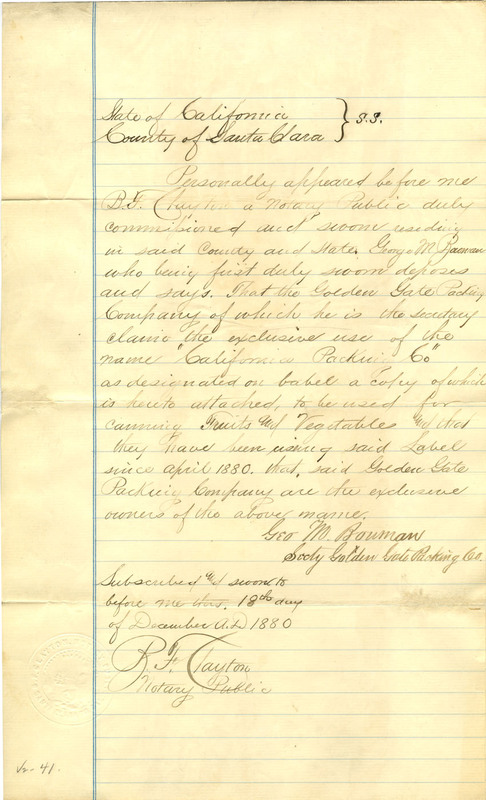 State of California
County of Santa Clara } S.S.
Personally appeared before me
B.F. a Notary Public duly
commissioned and sworn residing
in said County and State. George M. Bowman
who being first duly sworn deposes
and says. That the Golden Gate Packing
Company of which he is the secretary
claim the exclusive use of the
name "California Packing Co"
as designated on Label a copy of which
is hereto attached, to be used for
canning Fruits and Vegetables and that
they have been using said Label
since April 1880. that, said Golden Gate
Packing Company are the exclusive
owners of the above name.
Geo M. Bowman
Secty Golden Gate Packing Co.
Subscribed and sworn to
before me this. 18th day
of December A.D 1880
Clayton
Notary Public
41.